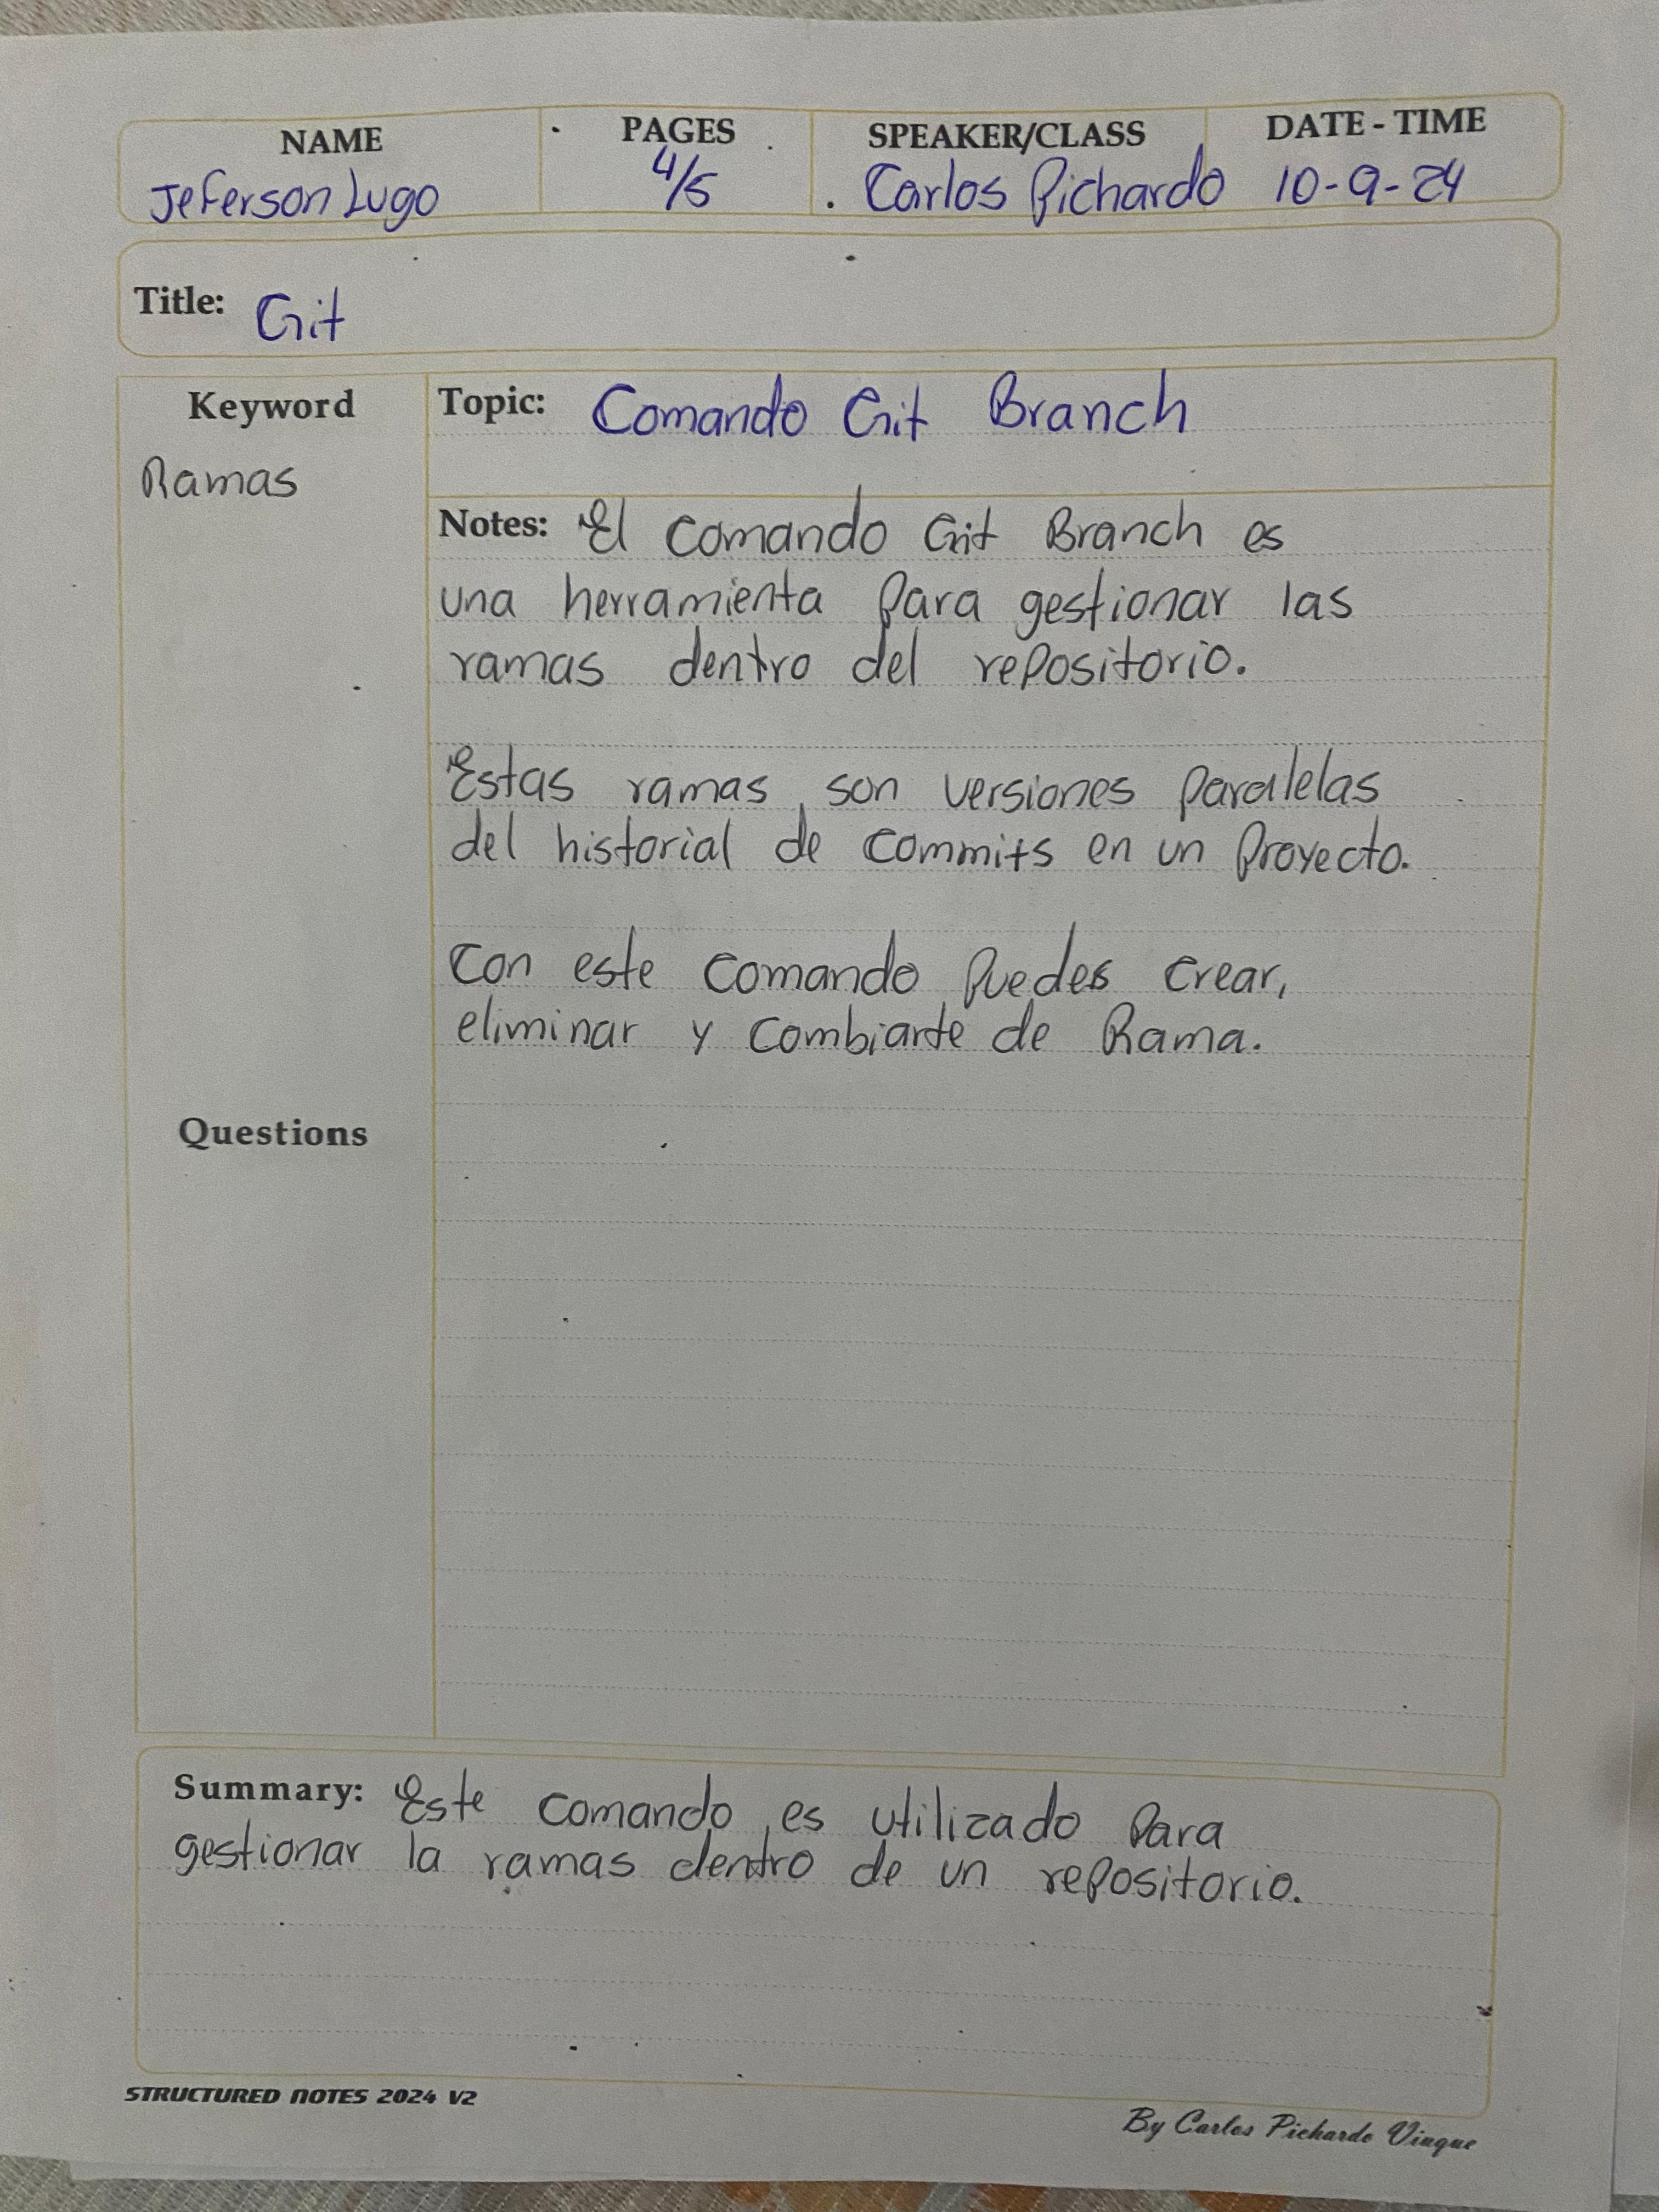 NAME PAGES SPEAKER/CLASS DATE - TIME
Jeferson Lugo 4/5 Carlos Pichardo 10-9-24
Title: Git
Keyword
Ramas
Topic: Comando Git Branch
Notes: El comando Git Branch es
una herramienta para gestionar las
ramas dentro del repositorio.
Estas ramas son versiones paralelas
del historial de commits en un proyecto.
Con este comando puedes crear,
eliminar y combiarte de Rama.
Questions
Summary: Este comando es utilizado para
gestionar la ramas dentro de un repositorio.
STRUCTURED NOTES 2024 V2
By Carlos Pichardo Viuque